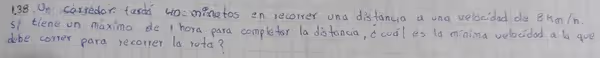 1.38. Un corredor tardó 40 minutos en recorrer una distancia a una velocidad de 8 km/h.
si tiene un máximo de 1 hora para completar la distancia, ¿cuál es la mínima velocidad a la que
debe correr para recorrer la ruta?